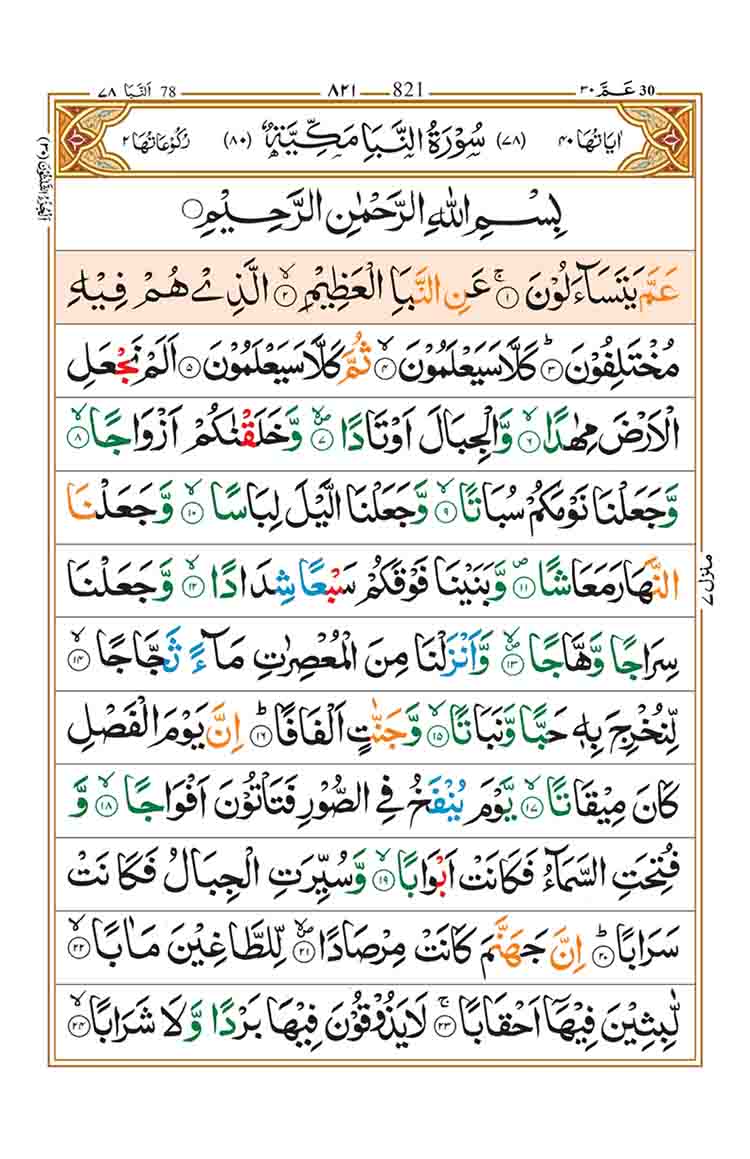 ٣٠ عَـمّ 30 ٨٢١ 821 ٧٨ اَلنَّبَا 78
اٰیَاتُهَا ٤٠ (٧٨) سُوْرَةُ النَّبَاِ مَكِّیَّةٌ (٨٠) رُكُوْعَاتُهَا ٢
بِسْمِ اللّٰهِ الرَّحْمٰنِ الرَّحِیْمِ
عَمَّ یَتَسَآءَلُوْنَ ۚ‏﴿١﴾ عَنِ النَّبَاِ الْعَظِیْمِ ۙ‏﴿٢﴾ الَّذِیْ هُمْ فِیْهِ
مُخْتَلِفُوْنَ ؕ‏﴿٣﴾ كَلَّا سَیَعْلَمُوْنَ ۙ‏﴿٤﴾ ثُمَّ كَلَّا سَیَعْلَمُوْنَ ﴿٥﴾ اَلَمْ نَجْعَلِ
الْاَرْضَ مِهٰدًا ۙ‏﴿٦﴾ وَّالْجِبَالَ اَوْتَادًا ۪ۙ‏﴿٧﴾ وَّخَلَقْنٰكُمْ اَزْوَاجًا ۙ‏﴿٨﴾
وَّجَعَلْنَا نَوْمَكُمْ سُبَاتًا ۙ‏﴿٩﴾ وَّجَعَلْنَا الَّیْلَ لِبَاسًا ۙ‏﴿١٠﴾ وَّجَعَلْنَا
النَّهَارَ مَعَاشًا ۪‏﴿١١﴾ وَّبَنَیْنَا فَوْقَكُمْ سَبْعًا شِدَادًا ۙ‏﴿١٢﴾ وَّجَعَلْنَا
سِرَاجًا وَّهَّاجًا ۪ۙ‏﴿١٣﴾ وَّاَنْزَلْنَا مِنَ الْمُعْصِرٰتِ مَآءً ثَجَّاجًا ۙ‏﴿١٤﴾
لِّنُخْرِجَ بِهٖ حَبًّا وَّنَبَاتًا ۙ‏﴿١٥﴾ وَّجَنّٰتٍ اَلْفَافًا ؕ‏﴿١٦﴾ اِنَّ یَوْمَ الْفَصْلِ
كَانَ مِیْقَاتًا ۙ‏﴿١٧﴾ یَّوْمَ یُنْفَخُ فِی الصُّوْرِ فَتَاْتُوْنَ اَفْوَاجًا ۙ‏﴿١٨﴾ وَّ
فُتِحَتِ السَّمَآءُ فَكَانَتْ اَبْوَابًا ۙ‏﴿١٩﴾ وَّسُیِّرَتِ الْجِبَالُ فَكَانَتْ
سَرَابًا ؕ‏﴿٢٠﴾ اِنَّ جَهَنَّمَ كَانَتْ مِرْصَادًا ۪ۙ‏﴿٢١﴾ لِّلطَّاغِیْنَ مَاٰبًا ۙ‏﴿٢٢﴾
لّٰبِثِیْنَ فِیْهَاۤ اَحْقَابًا ۚ‏﴿٢٣﴾ لَا یَذُوْقُوْنَ فِیْهَا بَرْدًا وَّلَا شَرَابًا ۙ‏﴿٢٤﴾
اَلْجُزْءُ الثَّلٰثُوْنَ (٣٠)
منزل ٧